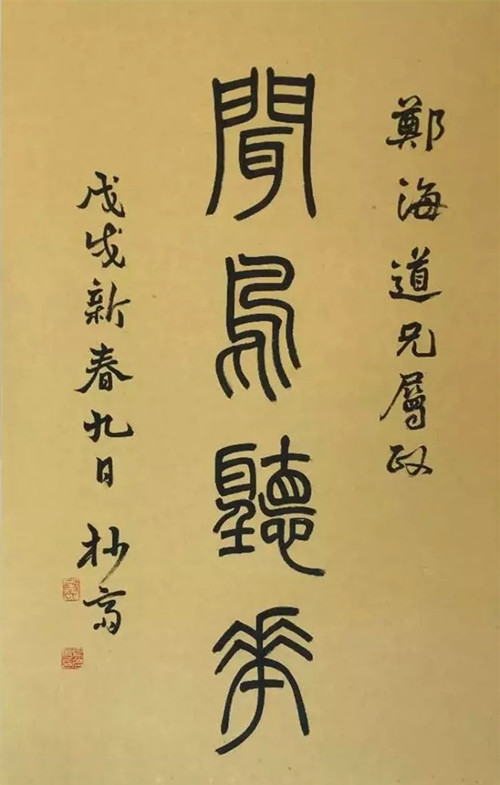 鄭海道兄屬政
聞鳥聽華
戊戌新春九日